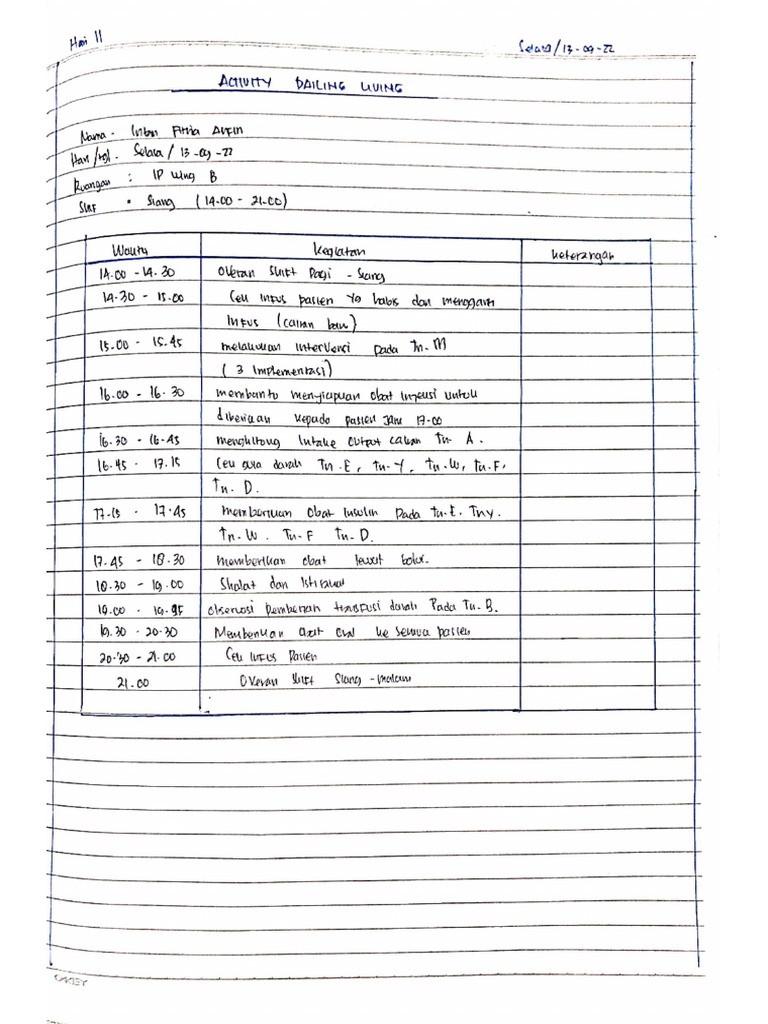 Hari 11
Selasa / 13-09-22
ACTIVITY DAILING LIVING
Nama - Intan Fitria Arifin
Hari/tgl. Selasa / 13-09-22
Ruangan : IP Wing B
Shif • Siang (14.00 - 21.00)
Waktu Kegiatan Keterangan
14.00 - 14.30 Overan Shift Pagi - Siang
14.30 - 15.00 Cek infus pasien yg habis dan mengganti
infus (cairan baru)
15.00 - 15.45 melakukan intervensi pada Tn. M
( 3 implementasi)
16.00 - 16.30 membantu menyiapkan obat injeksi untuk
diberikan kepada pasien jam 17-00
16.30 - 16-45 menghitong intake output cairan Tn. A.
16.45 - 17.15 Cek gula darah Tn. E, Tn. Y, Tn. W, Tn. F,
Tn. D.
17.15 - 17.45 memberikan obat insulin pada Tn. E. Tn Y.
Tn. W. Tn. F Tn. D.
17.45 - 18.30 memberikan obat lewat bolus.
18.30 - 19.00 Shalat dan istirahat
19.00 - 19.45 observasi pemberian transfusi darah Pada Tn. B.
19.30 - 20.30 Memberikan obat oral ke semua pasien
20.30 - 21.00 Cek infus pasien
21.00 Overan shift Siang - malam